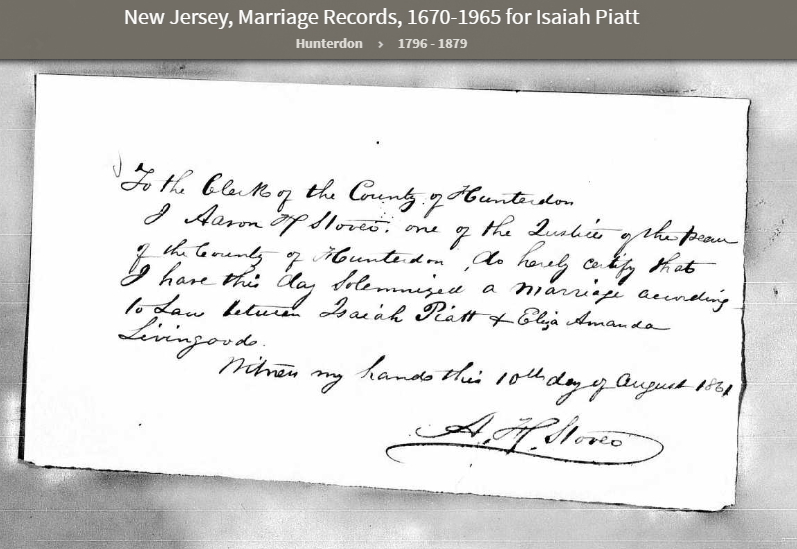 New Jersey, Marriage Records, 1670-1965 for Isaiah Piatt
Hunterdon › 1796 - 1879
To the Clerk of the County of Hunterdon
I Aaron H Stover. one of the Justice of the peace
of the County of Hunterdon, do hereby certify that
I have this day Solemnized a Marriage according
to Law between Isaiah Piatt & Eliza Amanda
Livingoods.
Witness my hands this 10th day of August 1861
A. H. Stover